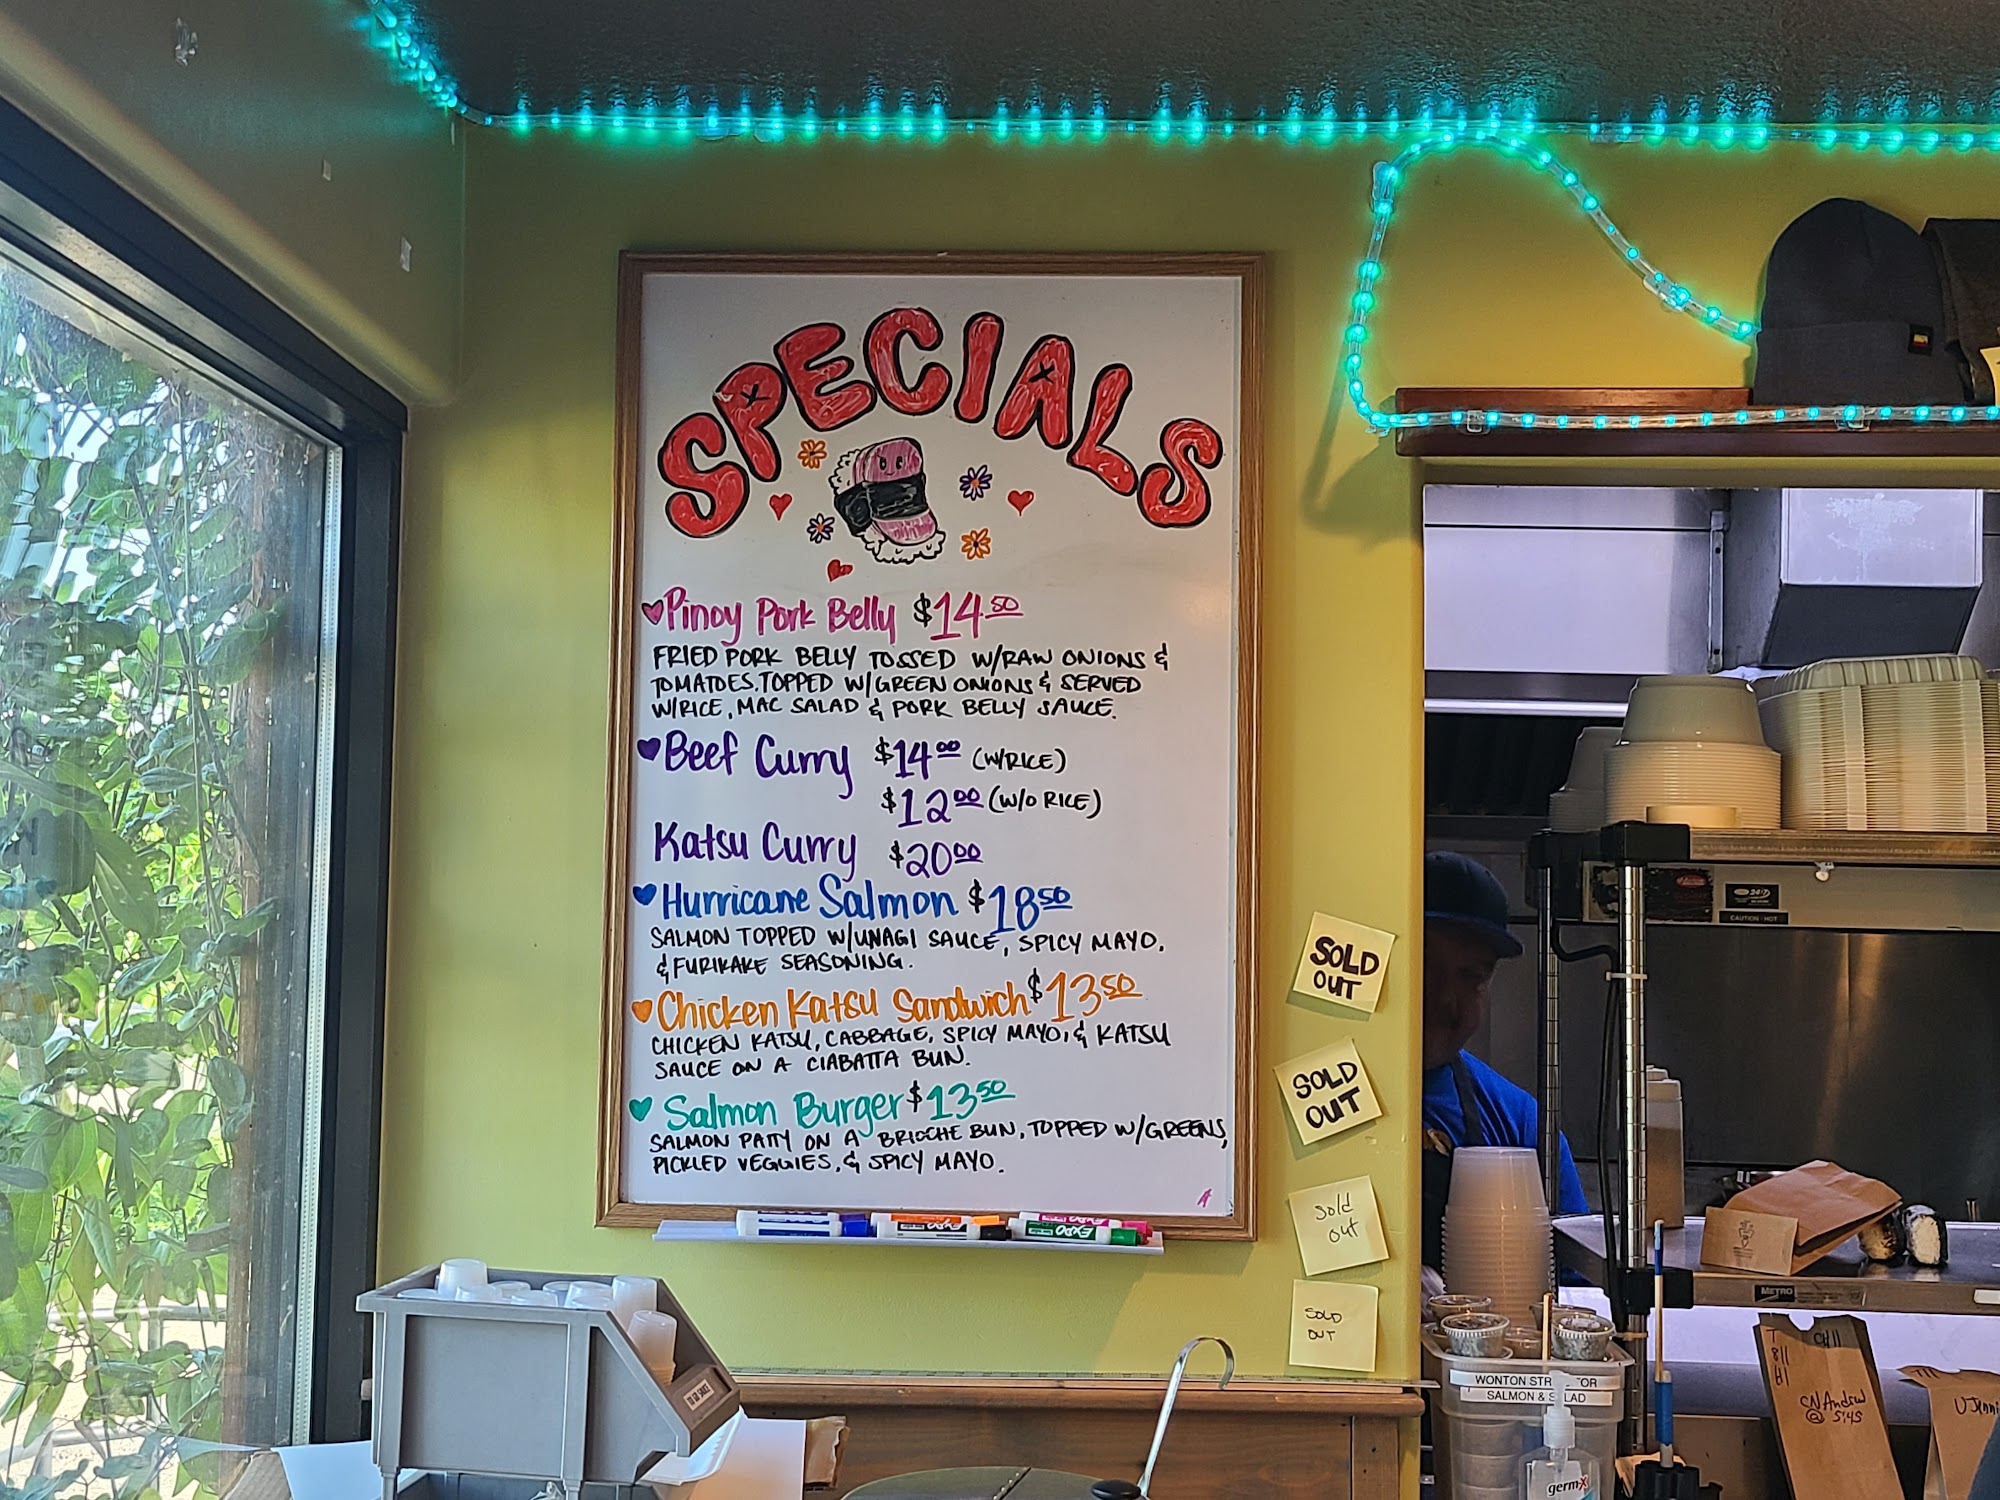 SPECIALS
Pinoy Pork Belly $14.50
FRIED PORK BELLY TOSSED W/RAW ONIONS &
TOMATOES. TOPPED W/GREEN ONIONS & SERVED
W/RICE, MAC SALAD & PORK BELLY SAUCE.
Beef Curry $14.00 (W/RICE)
$12.00 (W/O RICE)
Katsu Curry $20.00
Hurricane Salmon $18.50
SALMON TOPPED W/UNAGI SAUCE, SPICY MAYO,
& FURIKAKE SEASONING.
Chicken Katsu Sandwich $13.50
CHICKEN KATSU, CABBAGE, SPICY MAYO, & KATSU
SAUCE ON A CIABATTA BUN.
Salmon Burger $13.50
SALMON PATTY ON A BRIOCHE BUN, TOPPED W/GREENS,
PICKLED VEGGIES, & SPICY MAYO.
EXPO
EXPO
EXPO
SOLD
OUT
SOLD
OUT
Sold
out
SOLD
OUT
CAUTION HOT
METRO
WONTON
SALMON &
CN Andrew
@ 5:45
germ-x